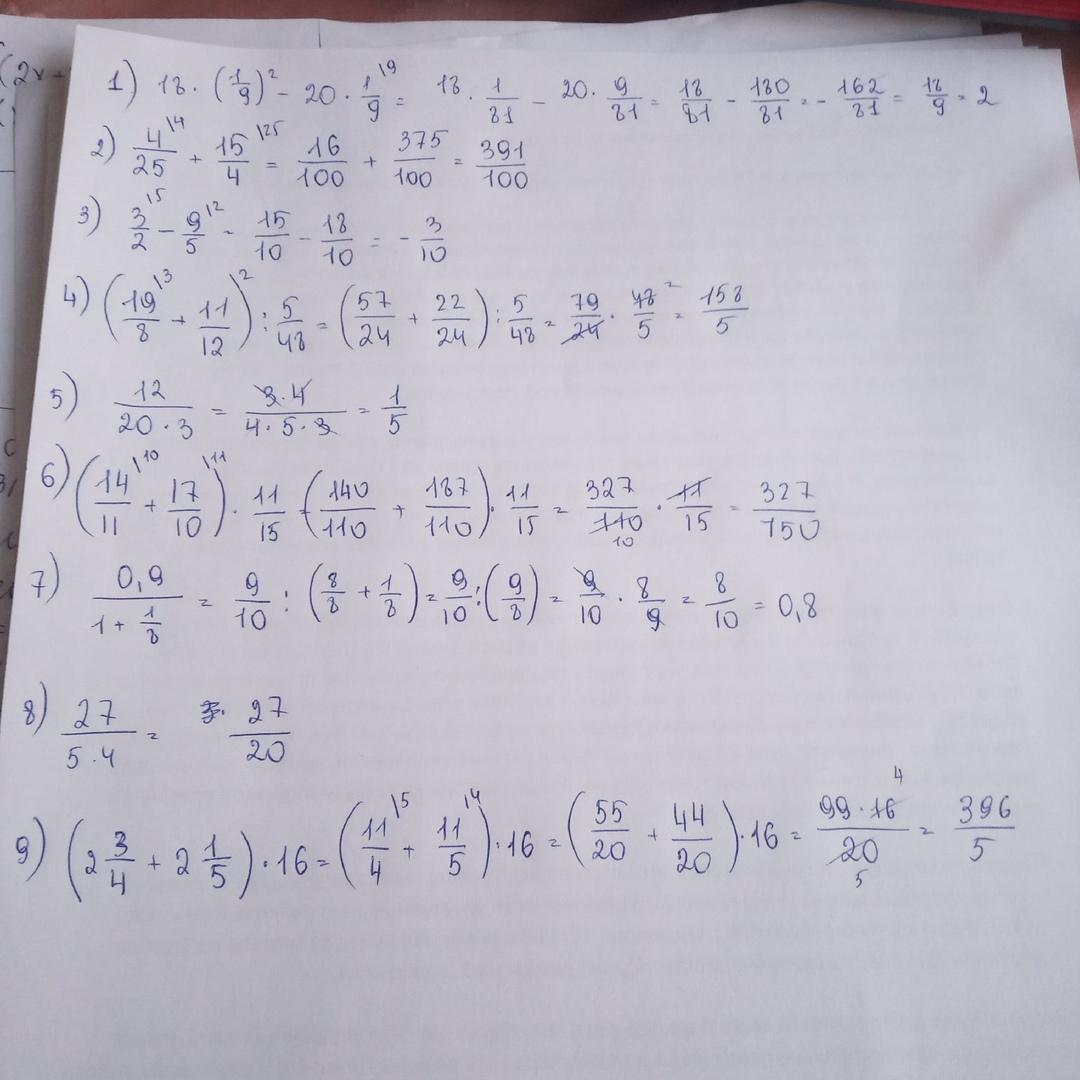 (2x +
1) 18 · (1/9)² - 20 · 1/9 \9 = 18 · 1/81 - 20 · 9/81 = 18/81 - 180/81 = - 162/81 = 18/9 = 2
2) 4/25 \4 + 15/4 \25 = 16/100 + 375/100 = 391/100
3) 3/2 \5 - 9/5 \2 = 15/10 - 18/10 = - 3/10
4) (19/8 \3 + 11/12 \2) : 5/48 = (57/24 + 22/24) : 5/48 = 79/24 · 48/5 2 = 158/5
5) 12/(20 · 3) = (3 · 4)/(4 · 5 · 3) = 1/5
6) (14/11 \10 + 17/10 \11) · 11/15 = (140/110 + 187/110) · 11/15 = 327/110 10 · 11/15 = 327/150
7) 0,9/(1 + 1/8) = 9/10 : (8/8 + 1/8) = 9/10 : (9/8) = 9/10 · 8/9 = 8/10 = 0,8
8) 27/(5 · 4) = 27/20
9) (2 3/4 + 2 1/5) · 16 = (11/4 \5 + 11/5 \4) · 16 = (55/20 + 44/20) · 16 = (99 · 16 4)/(20 5) = 396/5